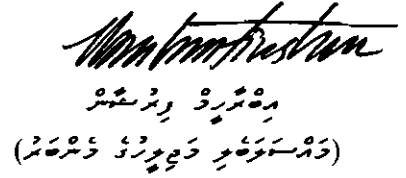 އިބްރާހީމް ފިރުޝާން
(މައްސަލަބެލި މަޖިލީހުގެ މެންބަރު)